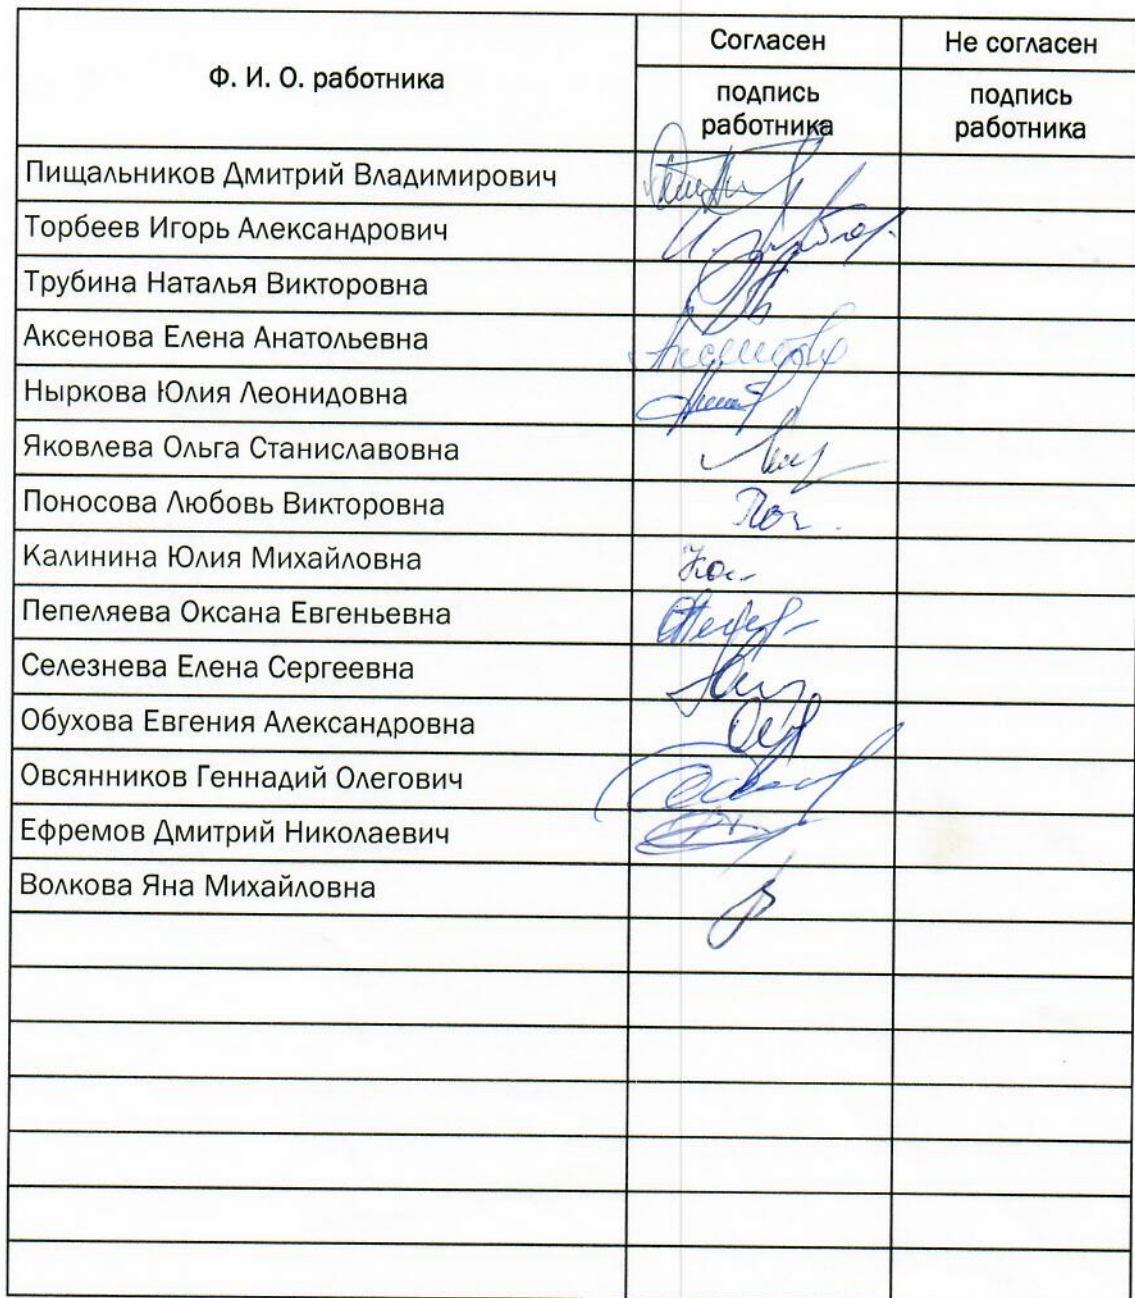 Ф. И. О. работника
Согласен
Не согласен
подпись
работника
подпись
работника
Пищальников Дмитрий Владимирович
Торбеев Игорь Александрович
Трубина Наталья Викторовна
Аксенова Елена Анатольевна
Ныркова Юлия Леонидовна
Яковлева Ольга Станиславовна
Поносова Любовь Викторовна
Калинина Юлия Михайловна
Пепеляева Оксана Евгеньевна
Селезнева Елена Сергеевна
Обухова Евгения Александровна
Овсянников Геннадий Олегович
Ефремов Дмитрий Николаевич
Волкова Яна Михайловна